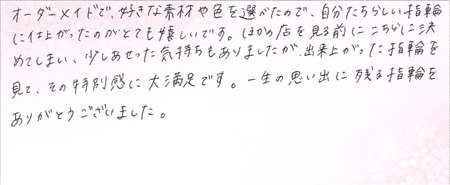 オーダーメイドで、好きな素材や色を選べたので、自分たちらしい指輪
に仕上がったのがとても嬉しいです。ほかの店を見る前にこちらに決
めてしまい、少しあせった気持ちもありましたが、出来上がった指輪を
見て、その特別感に大満足です。一生の思い出に残る指輪を
ありがとうございました。